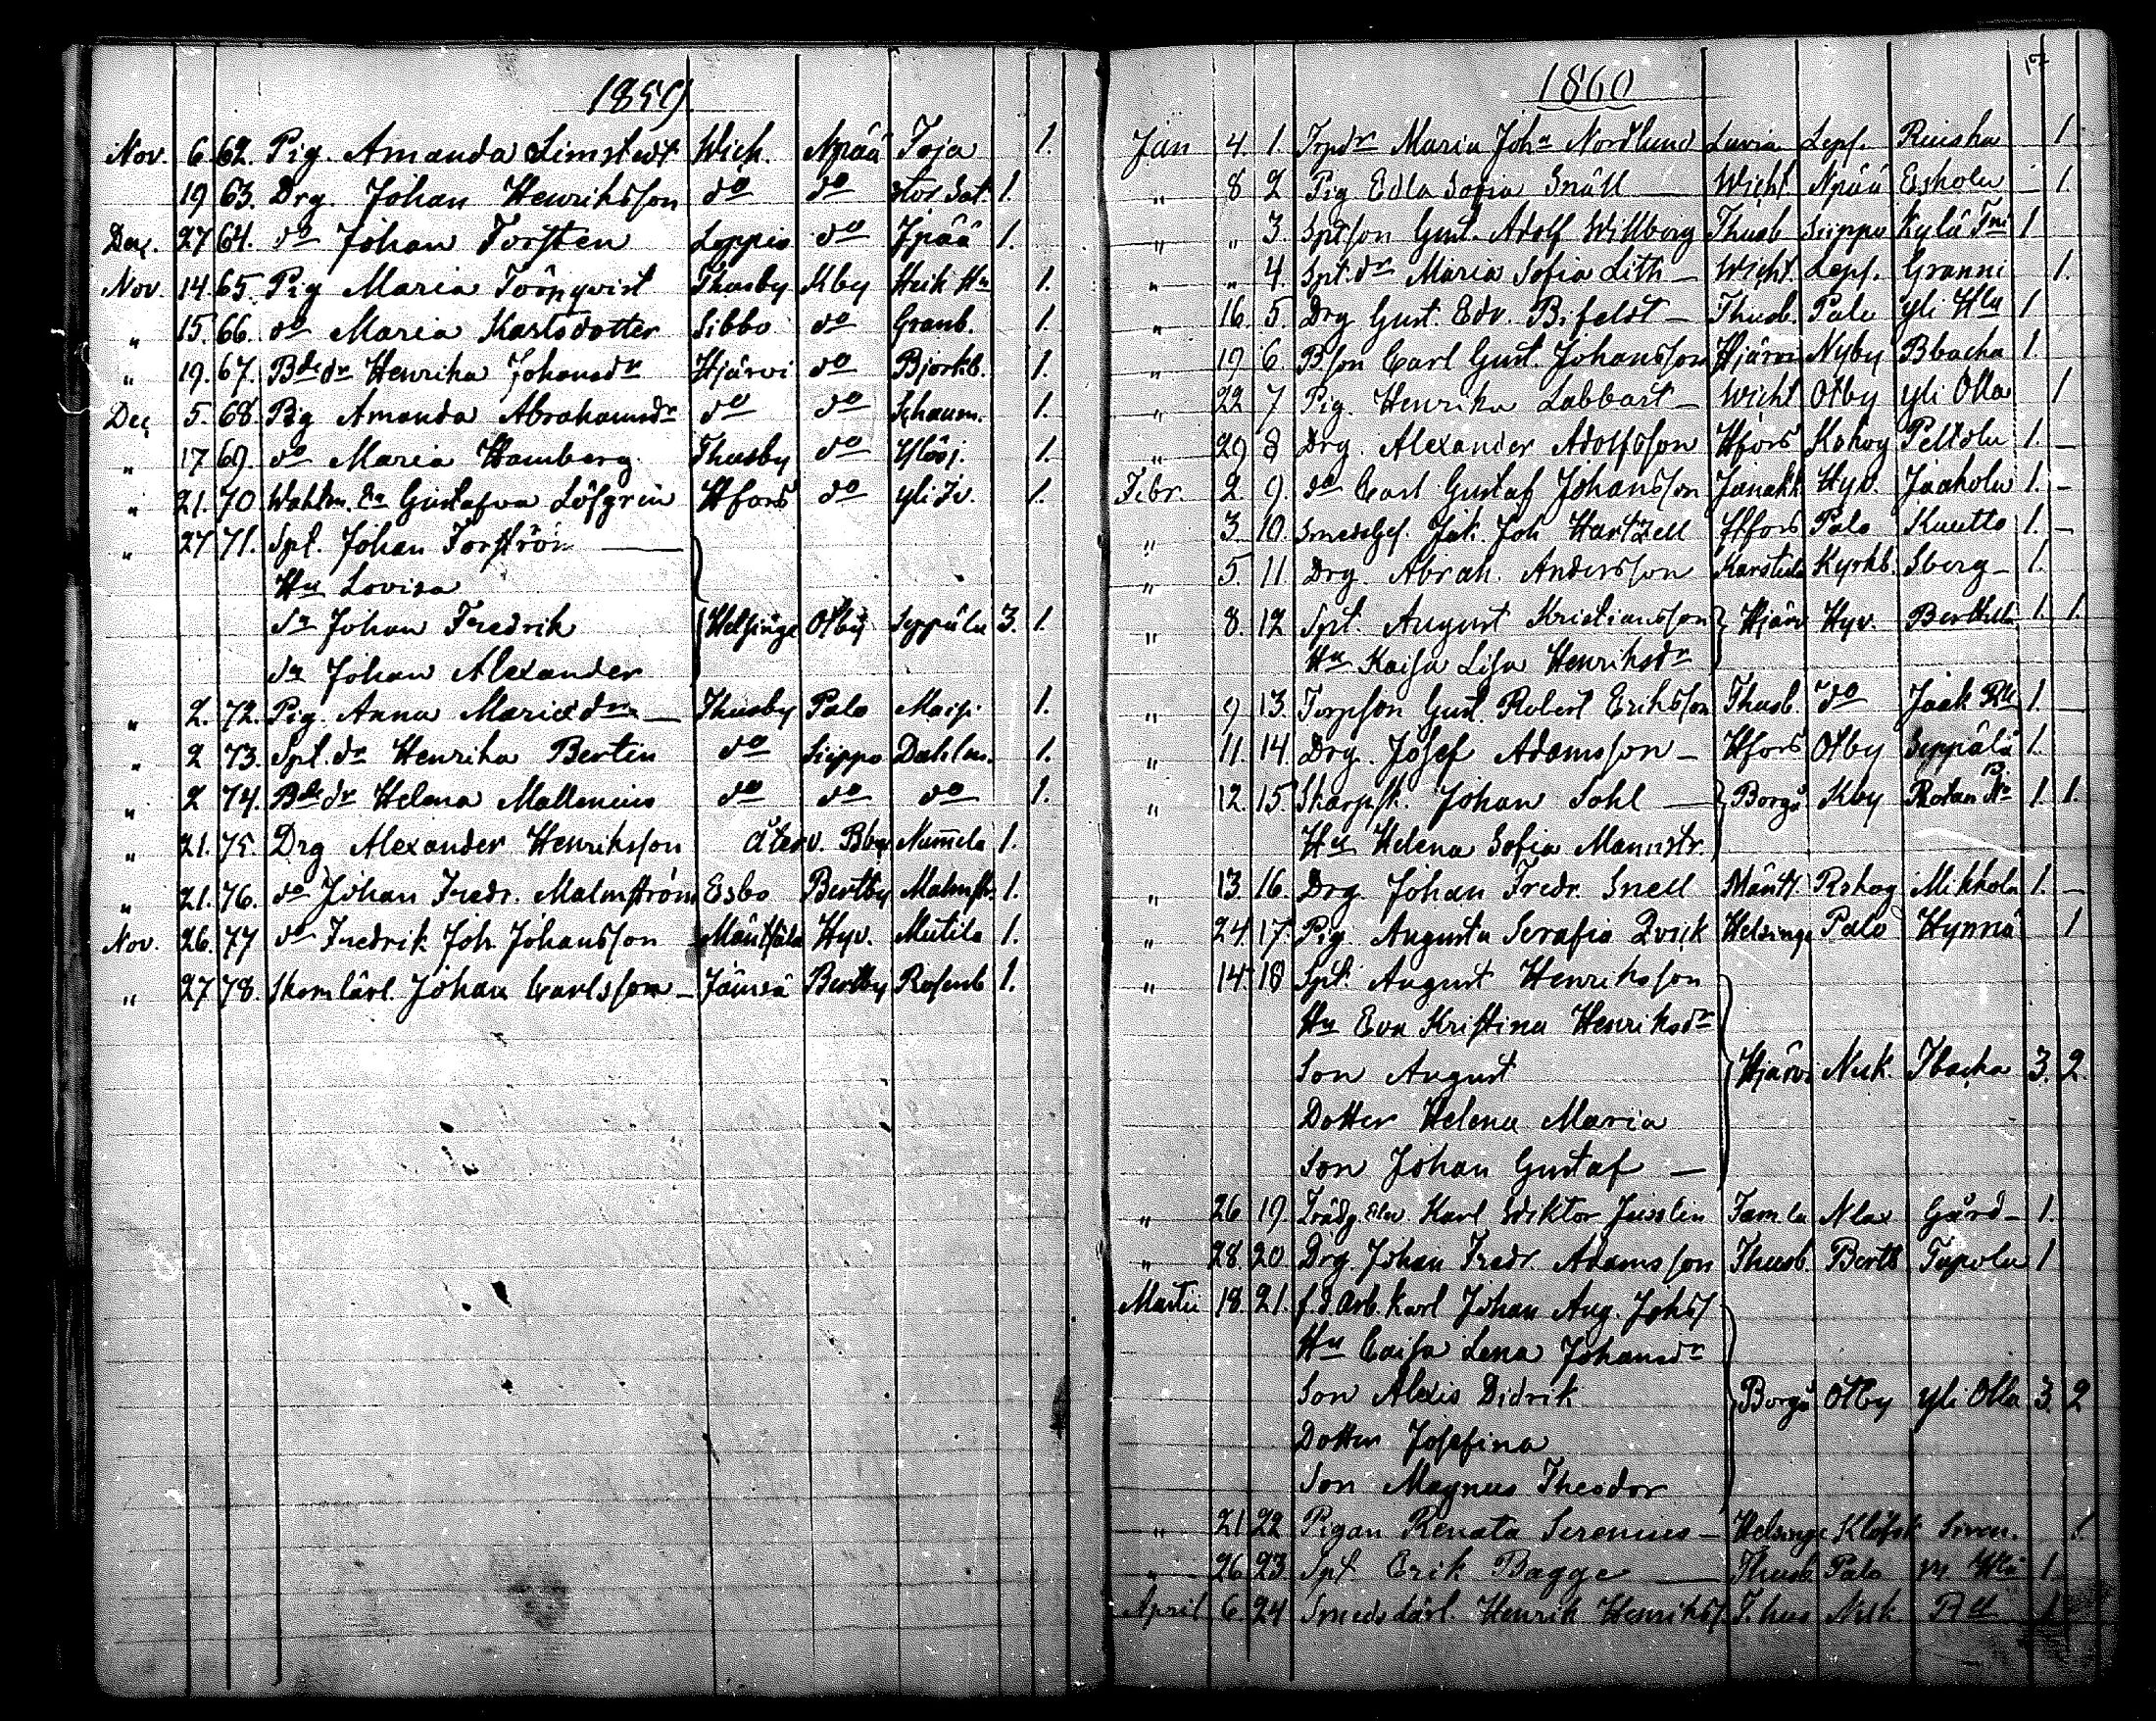 1859
Nov. 6 62. Pig. Amanda Limstedt Wich. Npää Toja 1.
19 63. Drg. Johan Henriksson do do Stor Sat. 1.
Dec. 27 64. do Johan Torsten Loppis do Jpää 1.
Nov. 14 65. Pig Maria Törnqvist Thusby Kby Heik Ha 1.
" 15. 66. do Maria Karlsdotter Sibbo do Granb. 1.
" 19. 67. Bde dr Henrika Johansdr Hjärvi do Bjorkb. 1.
Dec 5. 68. Pig Amanda Abrahamsdr do do Schaum. 1.
" 17 69. do Maria Hamberg Thusby do Ylööj. 1.
" 21. 70 Wahtm. Ea Gustafva Löfgren Hfors do yli Jv. 1.
" 27 71. Spt. Johan Forström
Hu Lovisa
Sn Johan Fredrik Helsinge Otby Seppälä 3. 1.
Sn Johan Alexander
" 2. 72. Pig. Anna Mariædr Thusby Palo Maisi 1.
" 2 73. Spt. dr Henrika Bertin do Siippo Dahlm. 1.
" 2 74. Bde dr Helena Mallenius do do do 1.
" 21. 75. Drg Alexander Henriksson Återv. Bby Nummela 1.
" 21. 76. do Johan Fredr. Malmström Esbo Bertby Malmstr. 1.
Nov. 26. 77 do Fredrik Joh Johansson Mäntsälä Hyv. Mutila 1.
" 27 78. Skom lärl. Johan Carlsson Jämsä Bertby Rosenb 1.
1860
Jan 4. 1. Trpdr Maria Joha Nordlund Luvia Leps. Ruisha 1.
" 8 2 Pig Edla Sofia Snäll Wicht Npää Esholu 1.
" " 3. Sptson Gust. Adolf Willberg Thusb Siippo Kylä Tmi 1
" " 4. Spt. dr Maria Sofia Lith Wicht. Leps. Granni 1.
" 16. 5. Drg Gust. Edv. Bifeldt Thusb. Palo yli Hlu 1
" 19 6. Bson Carl Gust. Johansson Hjärvi Nyby Bbacka 1.
" 22 7 Pig. Henrika Labbart Wicht Otby yli Olla 1
" 29 8 Drg. Alexander Adolfsson Hfors Kskog Peltolu 1.
Febr. 2 9. do Carl Gustaf Johansson Janakk Hyv. Jaaholu 1.
" 3. 10. Smedsges. Jak. Joh Hartzell Hfors Palo Knutts 1.
" 5. 11. Drg. Abrah. Andersson Karstula Kyrkb. Sberg 1.
" 8. 12 Spt. August Kristiansson Hjärv Hyv. Berthilä 1. 1.
Hu Kaisa Lisa Henriksdr
" 9 13. Torpson Gust. Robert Eriksson Thusb. do Jaak Rll 1
" 11. 14. Drg. Josef Adamsson Hfors Otby Seppälä 1.
" 12. 15. Skarpsk. Johan Sohl Borgå Kby Rotan 1. 1.
Hu Helena Sofia Mannstr.
" 13. 16. Drg. Johan Fredr. Snell Mänts. Rskog Mikkola 1.
" 24. 17. Pig. Augusta Serafia Qvick Helsinge Palo Hynnä 1
" 14 18 Spt. August Henriksson
Hu Eva Kristina Henriksdr
Son August Hjärvi Nuk. Jbacka 3. 2.
Dotter Helena Maria
Son Johan Gustaf
" 26 19. Trädg. elev. Karl Wiktor Juslin Tamla Nlax Gård 1.
" 28. 20 Drg. Johan Fredr. Adamsson Thusb. Bertb Tupolu 1
Martii 18. 21. f.d. arb. karl Johan Aug. Johs
Hu Caisa Lena Johansdr
Son Alexis Didrik Borgå Otby yli Olla 3. 2
Dotter Josefina
Son Magnus Theodor
" 21 22 Pigan Renata Serenius Helsinge Klöfsk Simon. 1.
" 26 23. Spt Erik Bagge Thusb Palo Hlä 1
April 6 24 Smeds lärl. Henrik Henrikss. Thus Nuk Rll 1